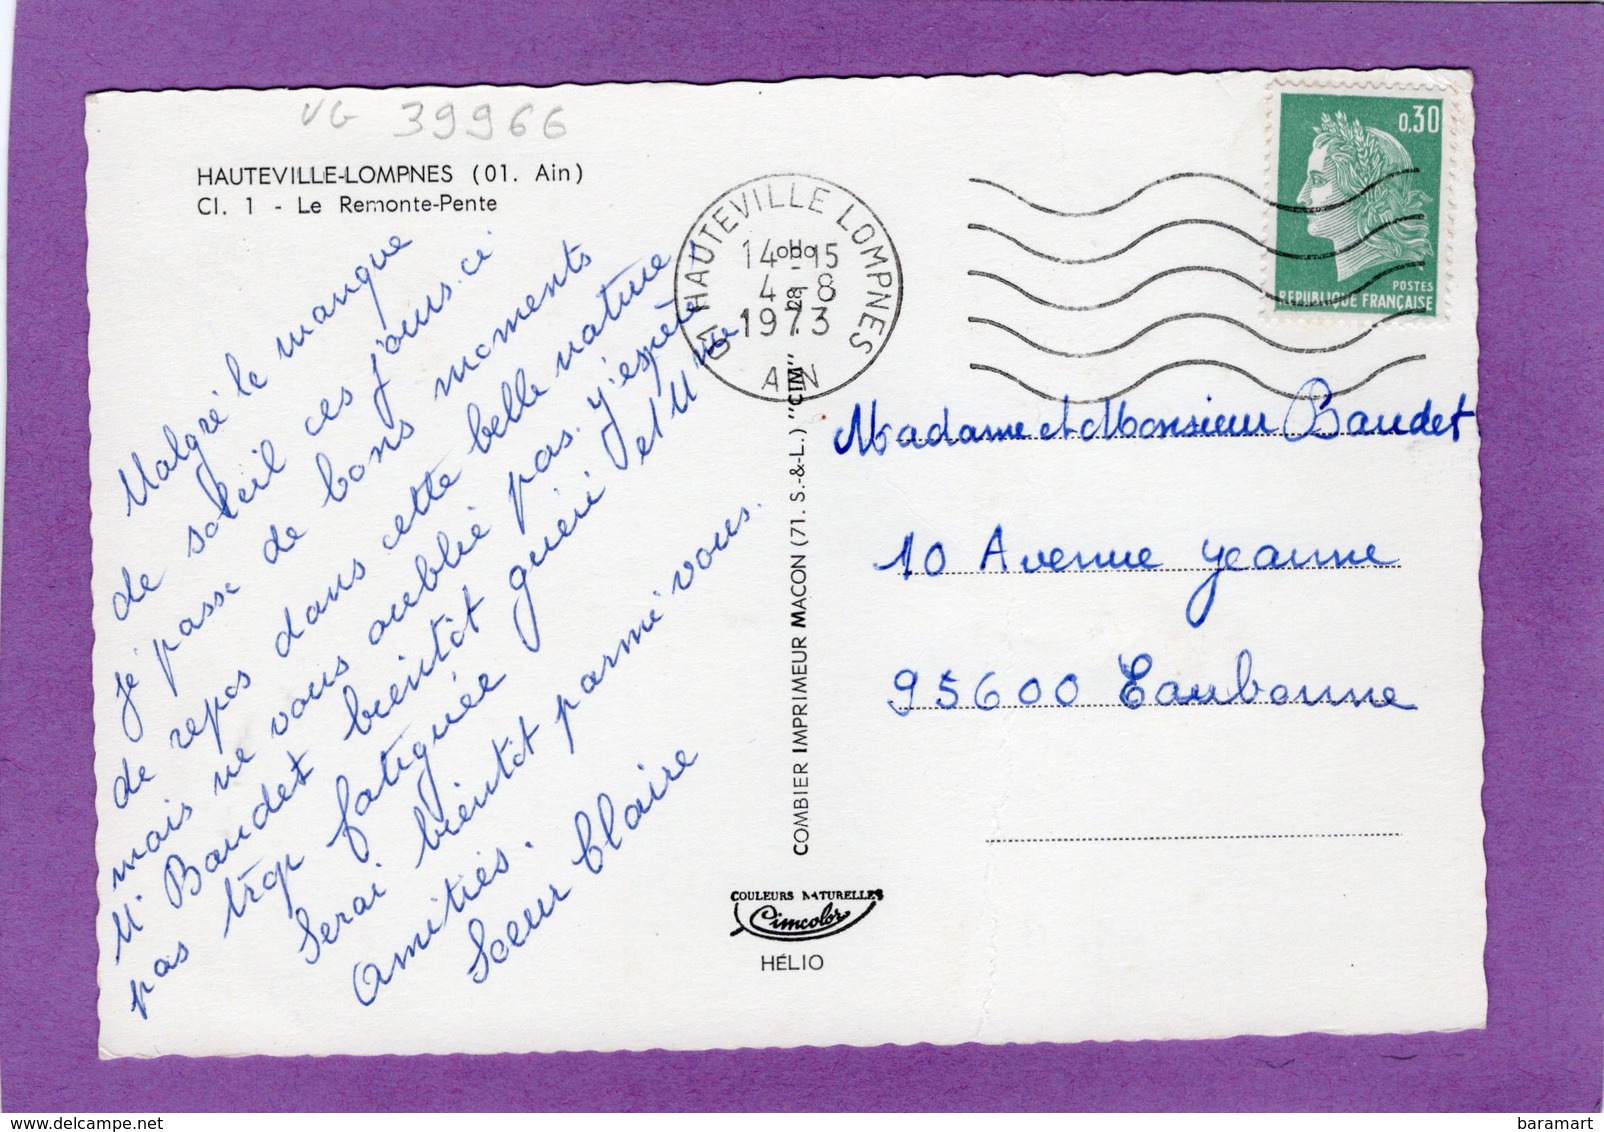 VG 39966
HAUTEVILLE-LOMPNES (01. Ain)
Cl. 1 - Le Remonte-Pente
Malgré le manque
de soleil ces jours.ci
je passe de bons moments
de repos dans cette belle nature
mais ne vous oublie pas. J'espère
Mr Baudet bientôt guéri et Mme
pas trop fatiguée
Serai bientôt parmi vous.
Amitiés.
Soeur Claire
COMBIER IMPRIMEUR MACON (71. S.-&-L.) "CIM"
COULEURS NATURELLES
Cimcolor
HÉLIO
01 HAUTEVILLE LOMPNES
14H15
4-8
1973
AIN
0,30
POSTES
REPUBLIQUE FRANÇAISE
Madame et Monsieur Baudet
10 Avenue Jeanne
95600 Eaubonne
delcampe.net
baramart